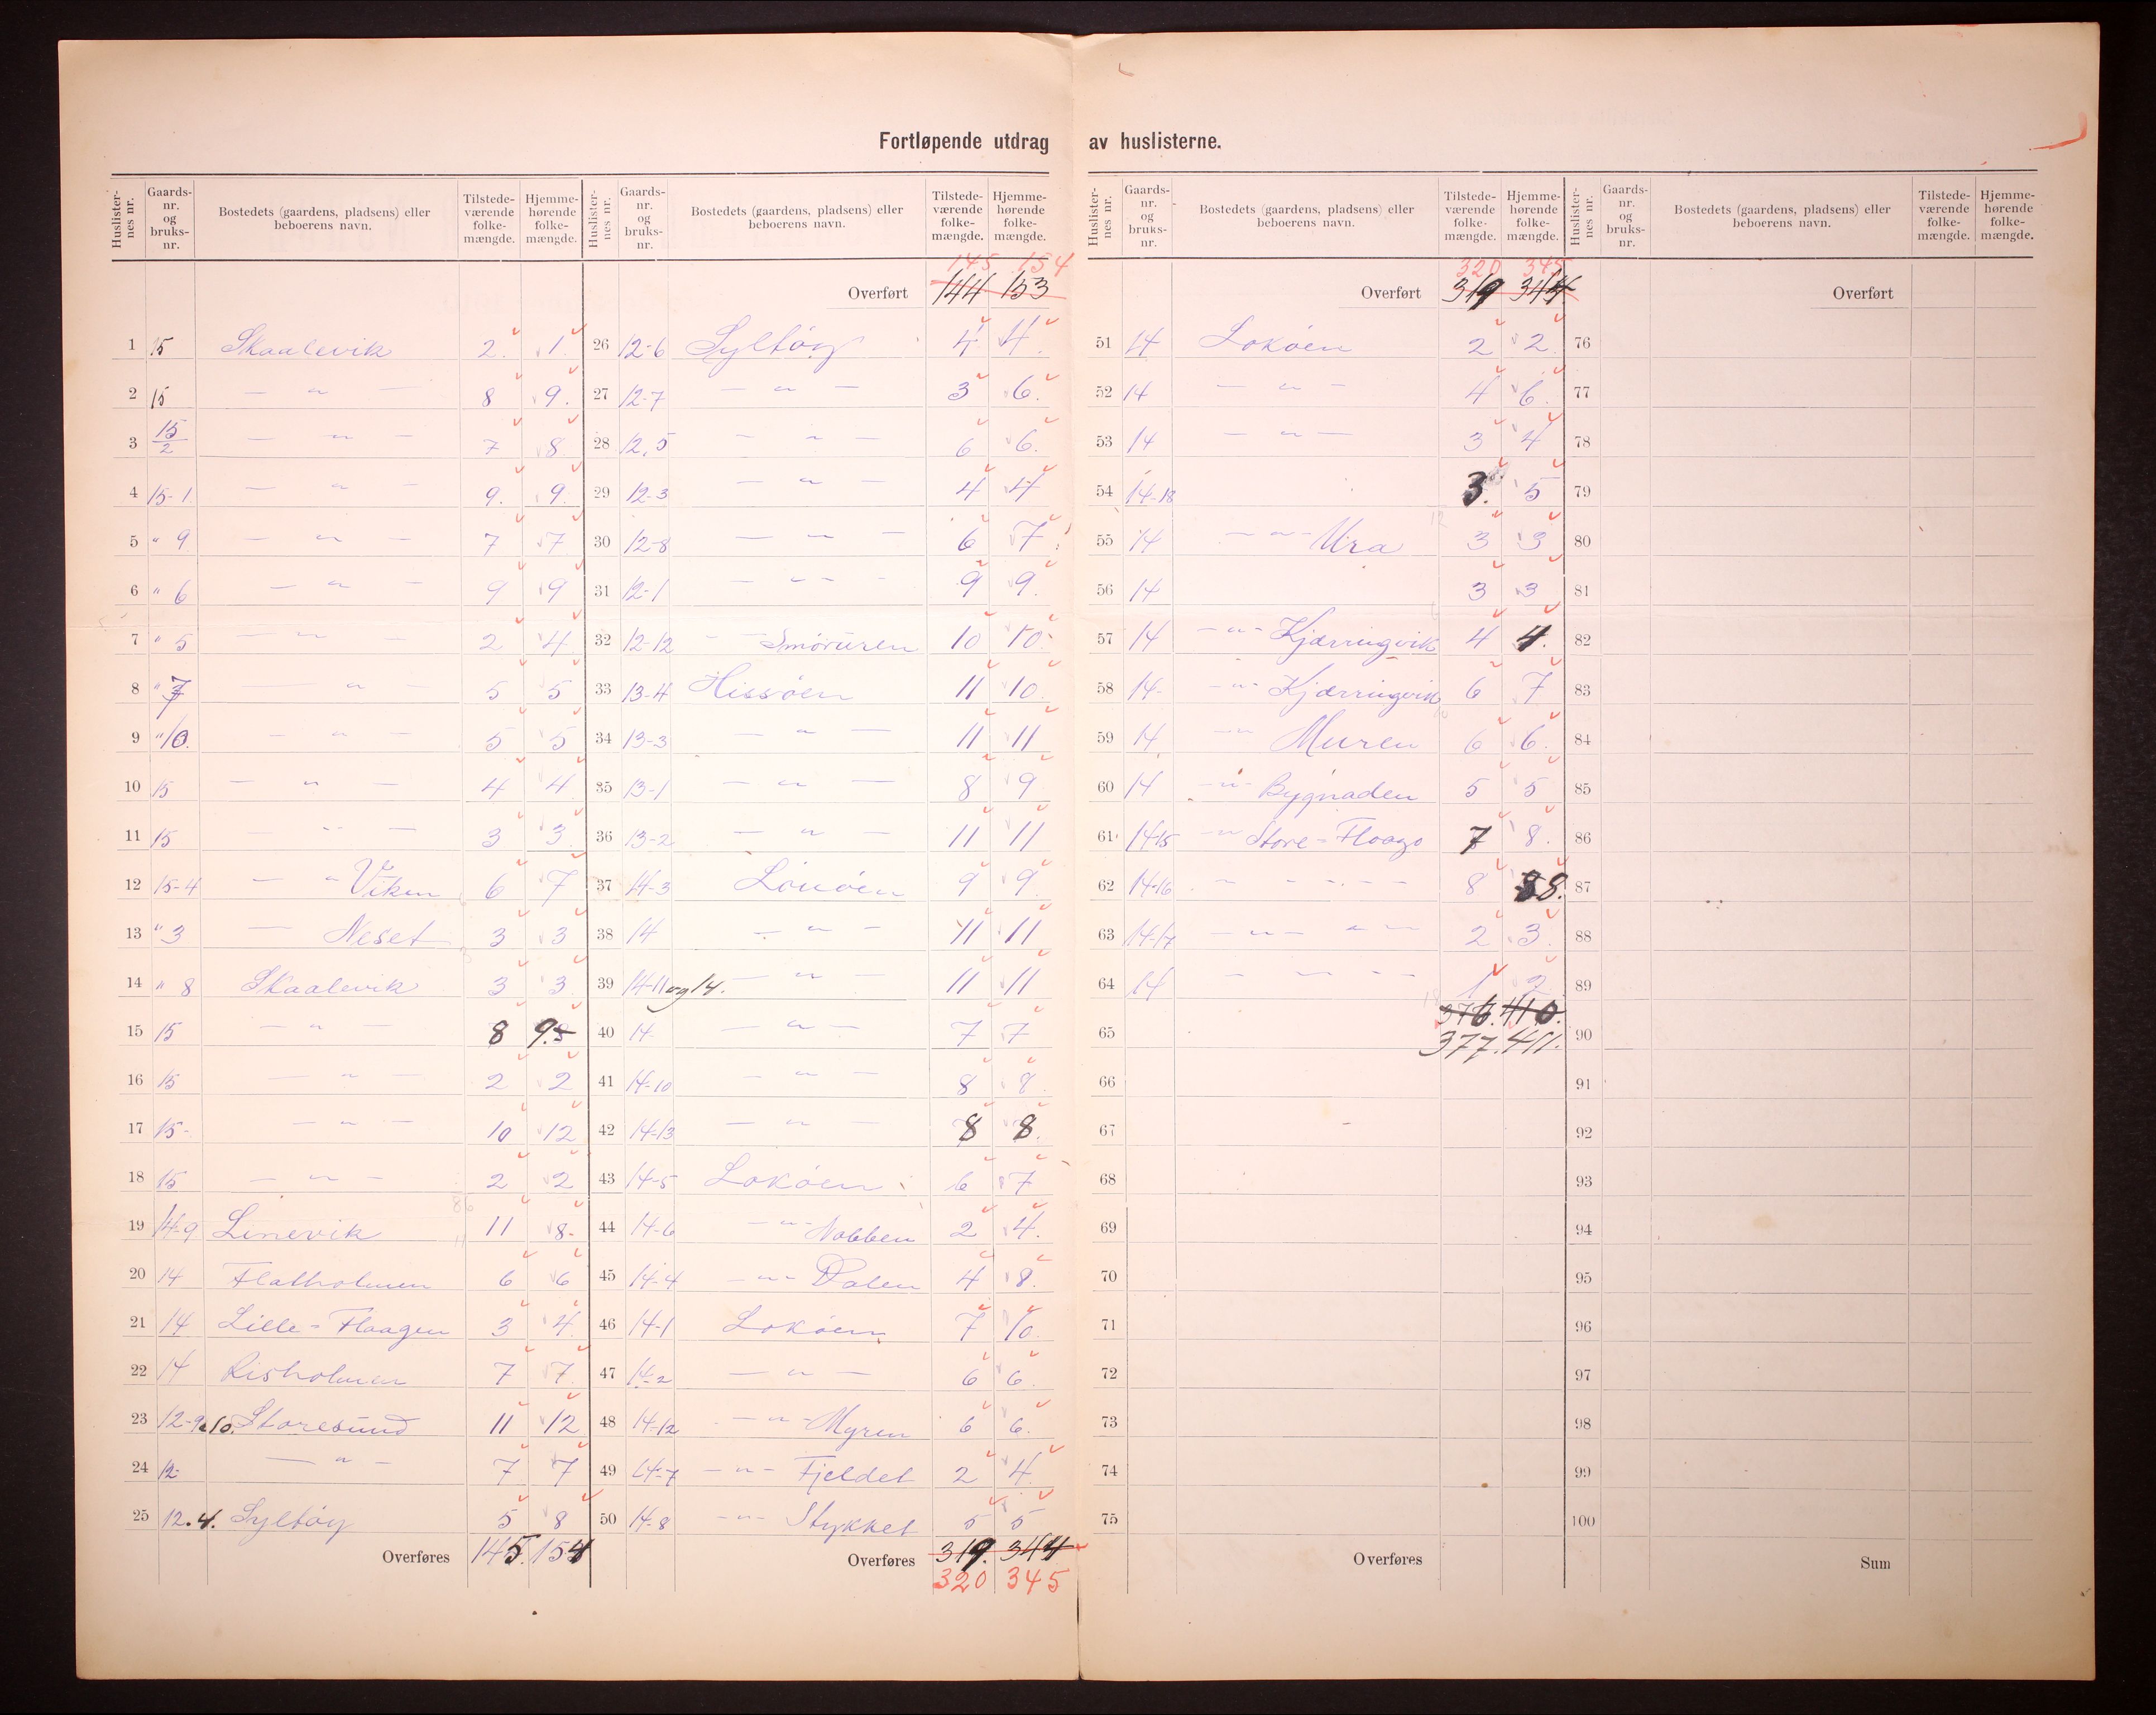 Fortløpende utdrag av huslisterne.
Huslister-nes nr. Gaards-nr. og bruks-nr. Bostedets (gaardens, pladsens) eller beboerens navn. Tilstede-værende folke-mængde. Hjemme-hørende folke-mængde.
1 15 Skaalevik 2. 1.
2 15 — " — 8 9.
3 15/2 — " — 7 8.
4 15-1. — " — 9. 9.
5 " 9 — " — 7 7
6 " 6 — " — 9 9
7 " 5 — " — 2 4
8 " 7 — " — 5 5
9 " 10. — " — 5 5
10 15 — " — 4 4
11 15 — " — 3 3
12 15-4 — " Viken 6 7
13 " 3 — Neset 3 3
14 " 8 Skaalevik 3 3.
15 15 — " — 8 9.
16 15 — " — 2 2
17 15- — " — 10 12
18 15 — " — 2 2
19 14-9 Linevik 11 8.
20 14 Flatholmen 6 6
21 14 Lille-Flaagen 3 4.
22 14 Risholmen 7 7.
23 12-9 10. Storesund 11 12
24 12- — " — 7 7
25 12.4. Syltøy 5 8
Overføres 145. 154
Huslister-nes nr. Gaards-nr. og bruks-nr. Bostedets (gaardens, pladsens) eller beboerens navn. Tilstede-værende folke-mængde. Hjemme-hørende folke-mængde.
145 154
Overført 144 153
26 12-6 Syltøy 4 4.
27 12-7 — " — 3 6.
28 12.5 — " — 6 6.
29 12-3 — " — 4 4
30 12-8 — " — 6 7
31 12-1 — " — 9 9.
32 12-12 — Smøruren 10 10.
33 13-4 Hissøen 11 10.
34 13-3 — " — 11 11
35 13-1 — " — 8 9
36 13-2 — " — 11 11
37 14-3 Lokøen 9 9.
38 14 — " — 11 11
39 14-11 og 14. — " — 11 11
40 14. — " — 7 7
41 14-10 — " — 8 8.
42 14-13 — " — 8 8.
43 14-5 Lokøen 6 7
44 14-6 — " — Nobben 2 4.
45 14-4 — " — Dalen 4 8.
46 14-1 Lokøen 7 10.
47 14-2 — " — 6 6.
48 14-12 — " — Myren 6 6.
49 14-7 — " — Fjeldet 2 4.
50 14-8 — " — Stykket 5 5
Overføres 319. 344
320 345
Huslister-nes nr. Gaards-nr. og bruks-nr. Bostedets (gaardens, pladsens) eller beboerens navn. Tilstede-værende folke-mængde. Hjemme-hørende folke-mængde.
320 345
Overført 319 344
51 14 Lokøen 2 2.
52 14 — " — 4 6.
53 14 — " — 3 4
54 14-18 3. 5
55 14 — " — Ura 3 3
56 14 3 3
57 14 — " — Kjærringvik 4 4.
58 14- — " — Kjærringvik 6 7
59 14 — " Muren 6 6.
60 14 — " — Bygnaden 5 5
61 14-15 — " Store-Flaago 7 8.
62 14-16 — — — — 8 8.
63 14-17 — " — " — 2 3.
64 14 — — — — 1 2
376. 410.
65 377. 411.
66
67
68
69
70
71
72
73
74
75
Overføres
Huslister-nes nr. Gaards-nr. og bruks-nr. Bostedets (gaardens, pladsens) eller beboerens navn. Tilstede-værende folke-mængde. Hjemme-hørende folke-mængde.
Overført
76
77
78
79
80
81
82
83
84
85
86
87
88
89
90
91
92
93
94
95
96
97
98
99
100
Sum